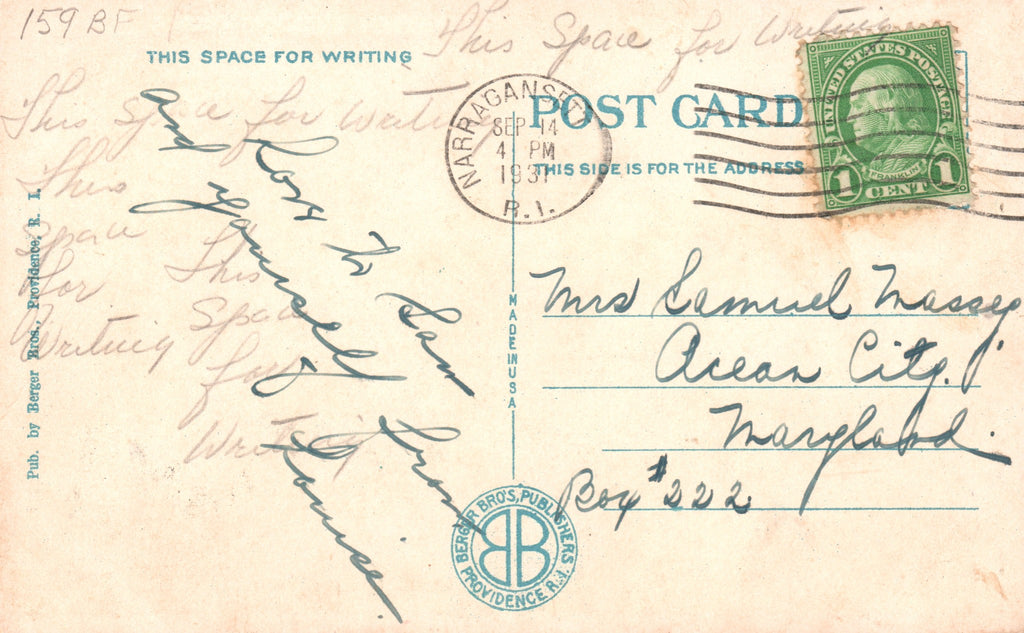 159 BF
THIS SPACE FOR WRITING
This Space for Writing
This Space for Writing
This
Space
for
Writing
This
Space
for
Writing
Love to Sam
and yourself from
Louise.
Pub. by Berger Bros., Providence, R. I.
NARRAGANSETT
SEP 14
4 PM
1931
R.I.
POST CARD
THIS SIDE IS FOR THE ADDRESS
UNITED STATES POSTAGE
FRANKLIN
1 CENT 1
MADE IN USA
Mrs Samuel Massey
Ocean City.
Maryland.
Box #222
BERGER BRO'S, PUBLISHERS
BB
PROVIDENCE R.I.